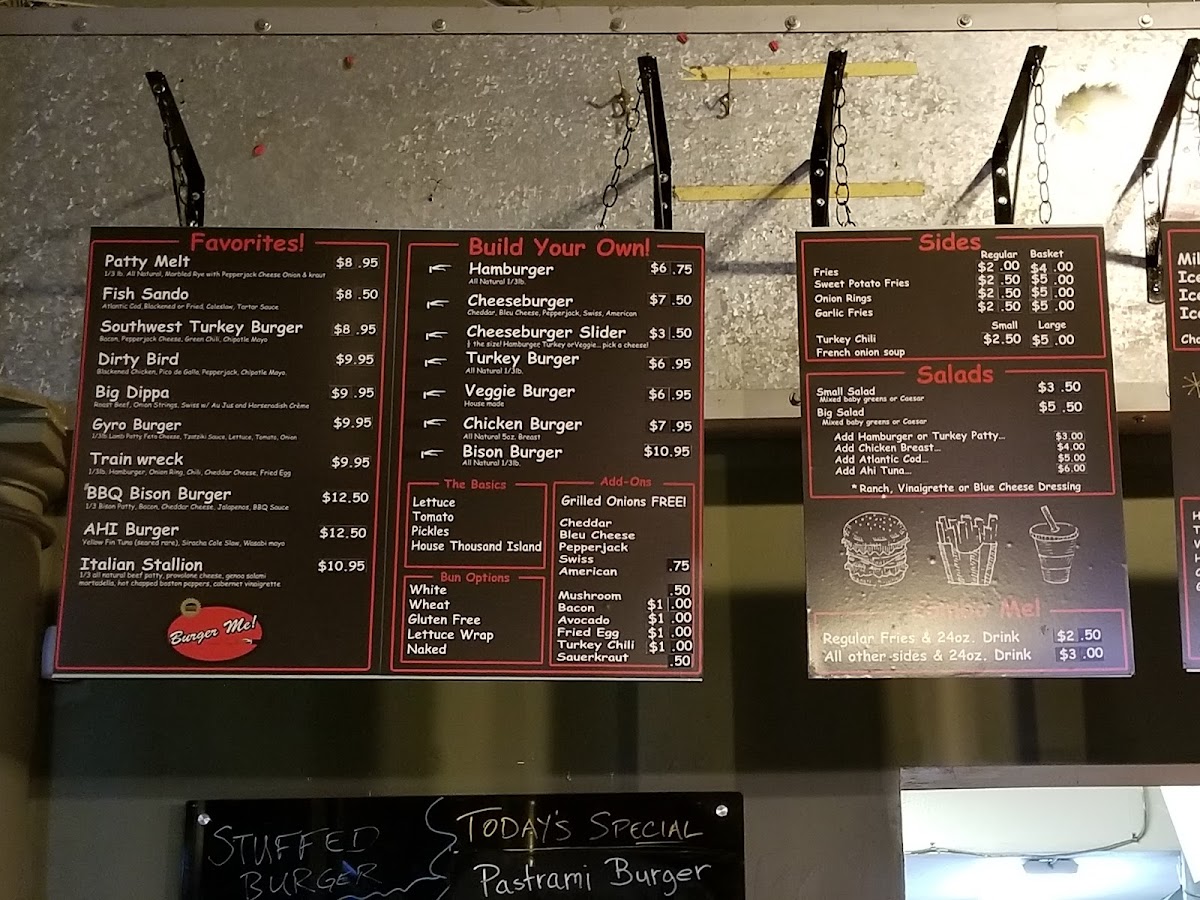 Favorites!
Patty Melt $8.95
1/3 lb. All Natural, Marbled Rye with Pepperjack Cheese Onion & kraut
Fish Sando $8.50
Atlantic Cod, Blackened or Fried, Coleslaw, Tartar Sauce
Southwest Turkey Burger $8.95
Bacon, Pepperjack Cheese, Green Chili, Chipotle Mayo
Dirty Bird $9.95
Blackened Chicken, Pico de Gallo, Pepperjack, Chipotle Mayo.
Big Dippa $9.95
Roast Beef, Onion Strings, Swiss w/ Au Jus and Horseradish Crème
Gyro Burger $9.95
1/3lb Lamb Patty Feta Cheese, Tzatziki Sauce, Lettuce, Tomato, Onion
Train wreck $9.95
1/3lb. Hamburger, Onion Ring, Chili, Cheddar Cheese, Fried Egg
BBQ Bison Burger $12.50
1/3 Bison Patty, Bacon, Cheddar Cheese, Jalapenos, BBQ Sauce
AHI Burger $12.50
Yellow Fin Tuna (seared rare), Siracha Cole Slaw, Wasabi mayo
Italian Stallion $10.95
1/3 all natural beef patty, provolone cheese, genoa salami
mortadella, hot chopped boston peppers, cabernet vinaigrette
Burger Me!
Build Your Own!
Hamburger $6.75
All Natural 1/3lb.
Cheeseburger $7.50
Cheddar, Bleu Cheese, Pepperjack, Swiss, American
Cheeseburger Slider $3.50
½ the size! Hamburger, Turkey orVeggie... pick a cheese!
Turkey Burger $6.95
All Natural 1/3lb.
Veggie Burger $6.95
House made
Chicken Burger $7.95
All Natural 5oz. Breast
Bison Burger $10.95
All Natural 1/3lb.
The Basics
Lettuce
Tomato
Pickles
House Thousand Island
Bun Options
White
Wheat
Gluten Free
Lettuce Wrap
Naked
Add-Ons
Grilled Onions FREE!
Cheddar
Bleu Cheese
Pepperjack
Swiss
American .75
Mushroom .50
Bacon $1.00
Avocado $1.00
Fried Egg $1.00
Turkey Chili $1.00
Sauerkraut .50
Sides
Regular Basket
Fries $2.00 $4.00
Sweet Potato Fries $2.50 $5.00
Onion Rings $2.50 $5.00
Garlic Fries $2.50 $5.00
Small Large
Turkey Chili $2.50 $5.00
French onion soup
Salads
Small Salad $3.50
Mixed baby greens or Caesar
Big Salad $5.50
Mixed baby greens or Caesar
Add Hamburger or Turkey Patty... $3.00
Add Chicken Breast... $4.00
Add Atlantic Cod... $5.00
Add Ahi Tuna... $6.00
*Ranch, Vinaigrette or Blue Cheese Dressing
Me!
Regular Fries & 24oz. Drink $2.50
All other sides & 24oz. Drink $3.00
Mil
Ice
Ice
Ice
Cho
STUFFED
BURGER
TODAY'S SPECIAL
Pastrami Burger